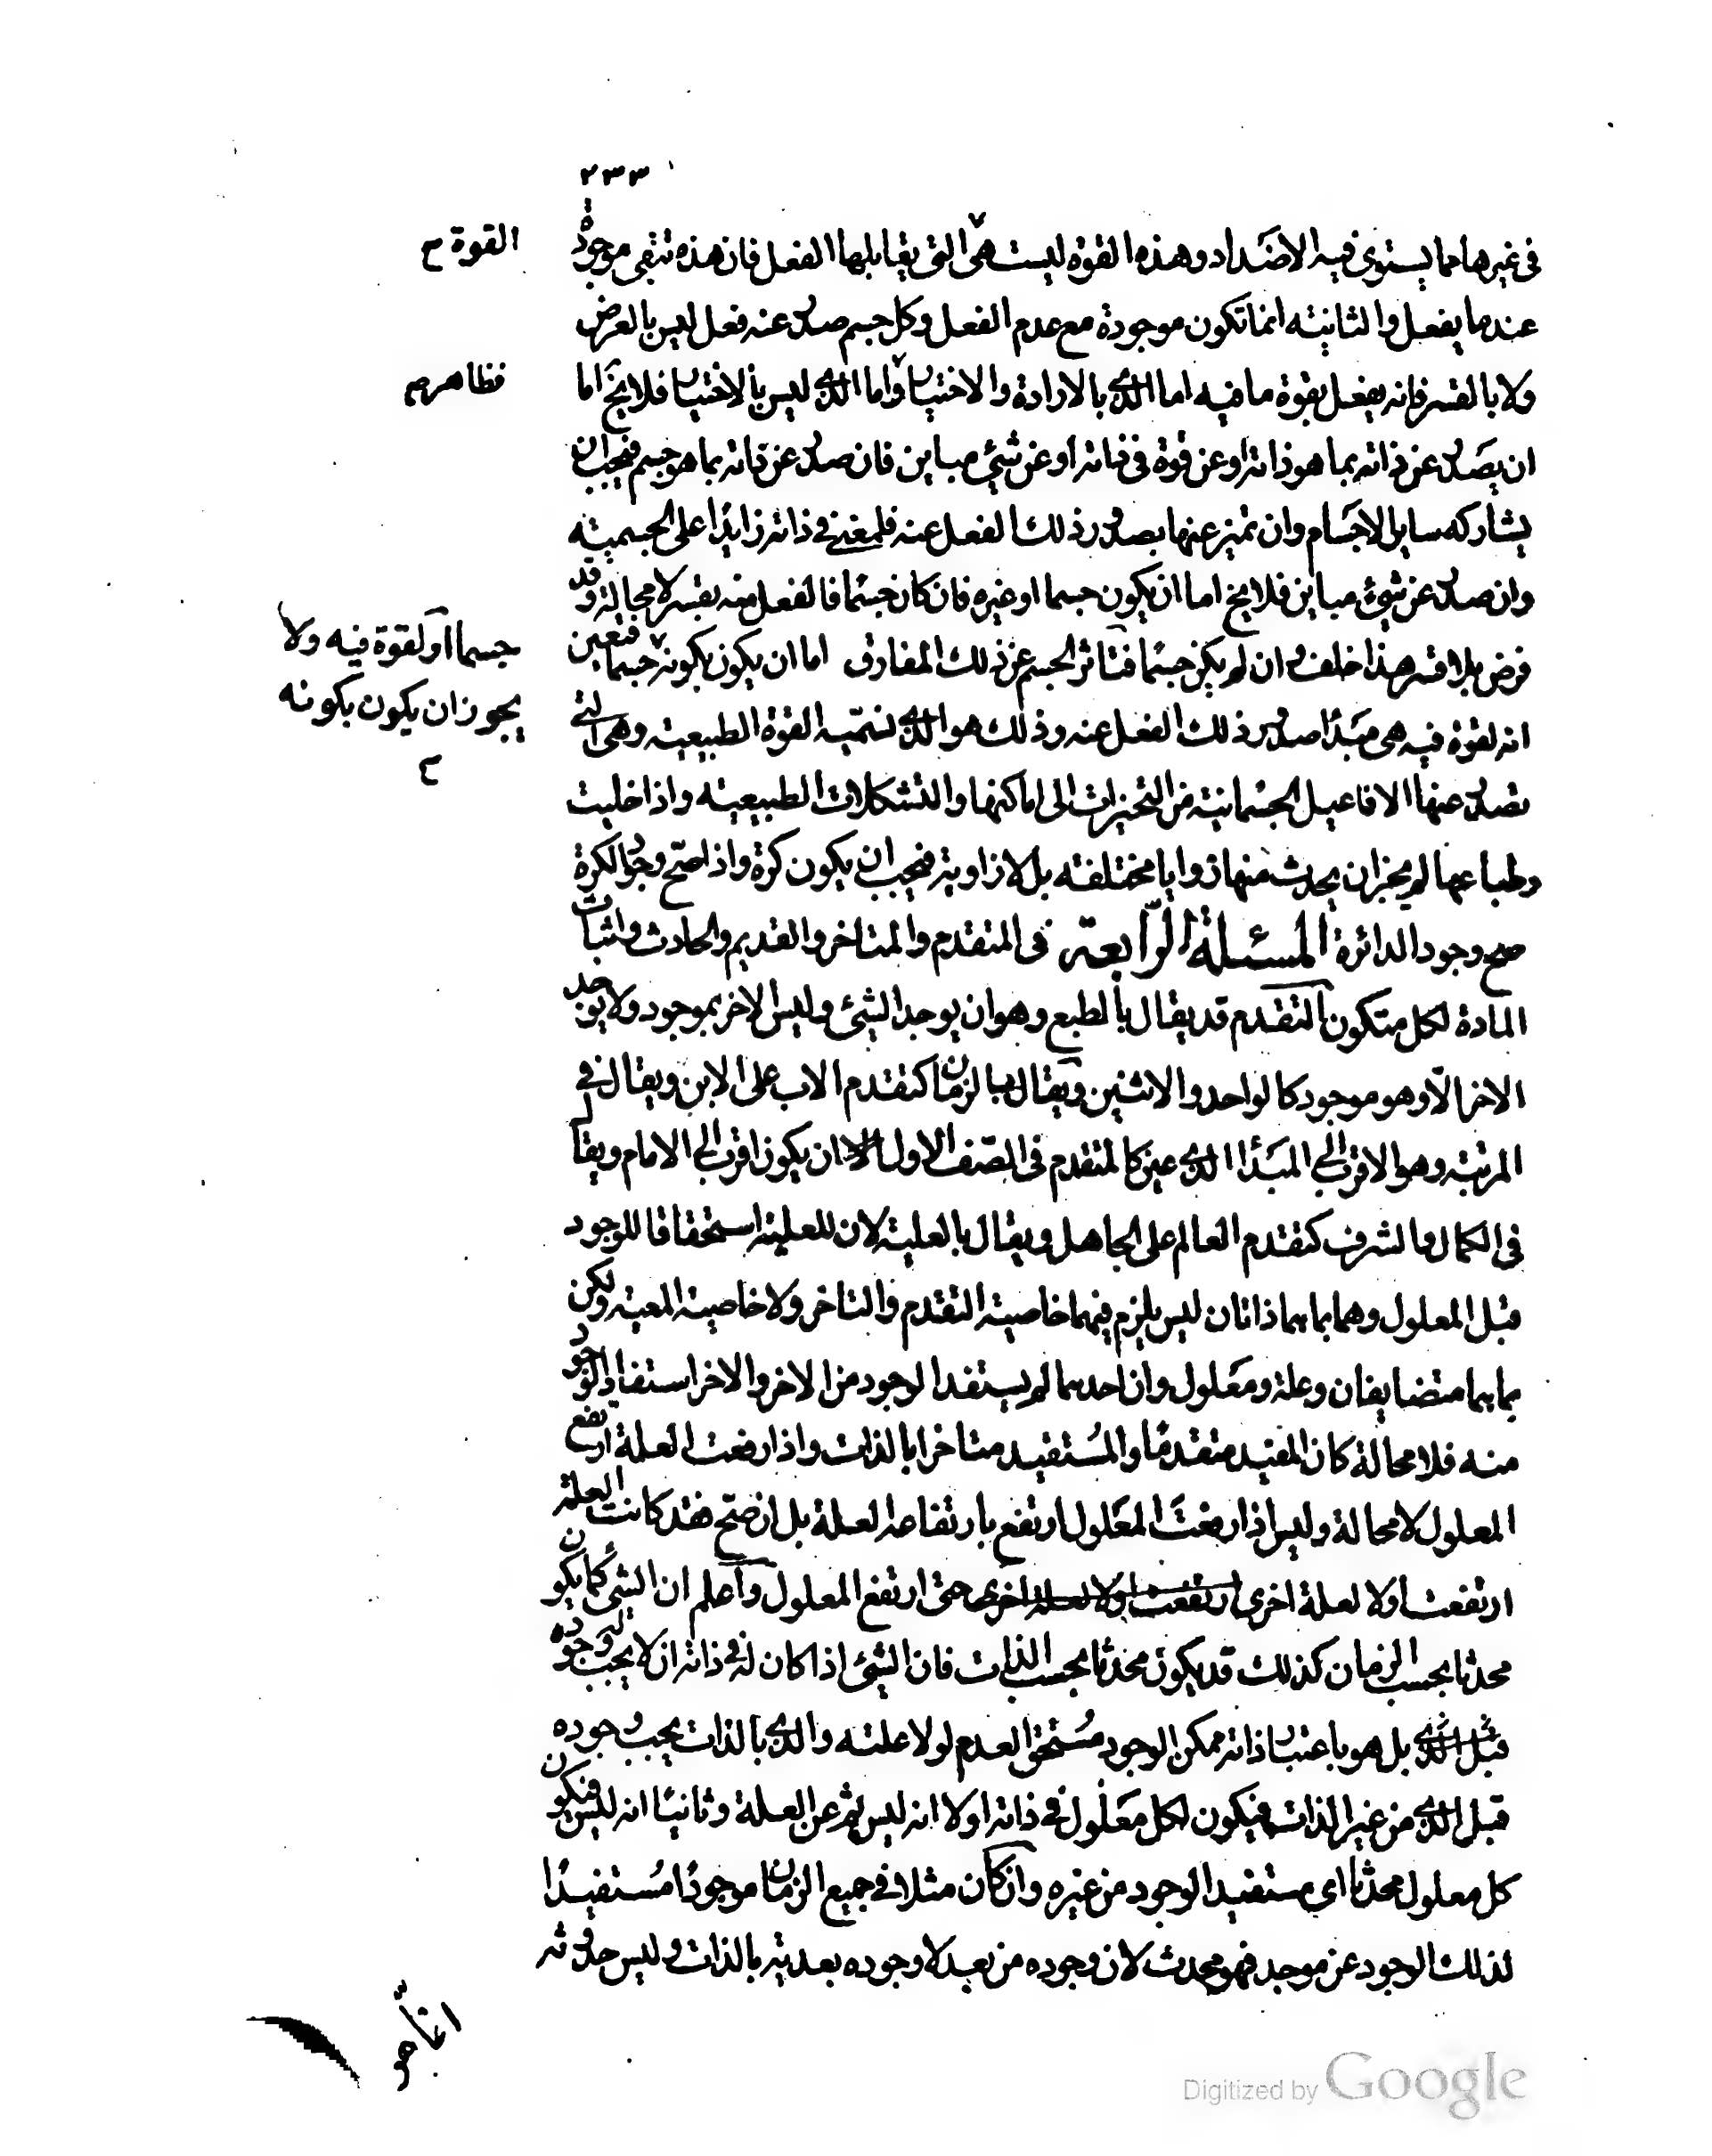 ٢٣٣
فى غيرها مما يستوى فيه الاضداد وهذه القوة ليست هى التى يقابلها الفعل فان هذه تبقى موجودة
القوة صح
عندما يفعل والثانية انما تكون موجودة مع عدم الفعل وكل جسم صدر عنه فعل ليس بالعرض
ولا بالقسر فانه يفعل بقوة ما فيه اما الذى بالارادة والاختيار واما الذى ليس بالاختيار فلا يخ اما
فظاهر صح
ان يصدر عن ذاته بما هو ذاته او عن قوة فى ذاته او عن شئ مباين فان صدر عن ذاته بما هو جسم فيجب ان
يشاركه ساير الاجسام وان تميز عنها بصدور ذلك الفعل عنه فلمعنى فى ذاته زايدا على الجسمية
وان صدر عن شئ مباين فلا يخ اما ان يكون جسما او غيره فان كان جسما فالفعل منه بقسر لا محالة وقد
فرض بلا قسر هذا خلف وان لم يكن جسما فتاثر الجسم عن ذلك المفارق اما ان يكون بكونه جسما فتعين
جسما او لقوة فيه ولا
يجوز ان يكون بكونه
صح
انه لقوة فيه هى مبدأ صدور ذلك الفعل عنه وذلك هو الذى نسميه القوة الطبيعية وهى التى
تصدر عنها الافاعيل الجسمانية من التحيزات الى اماكنها والتشكلات الطبيعية واذا خليت
وطباعها لم يجز ان يحدث منها زوايا مختلفة بل لا زاوية فيجب ان يكون كرة واذا صح وجود الكرة
صح وجود الدائرة المسئلة الرابعة فى المتقدم والمتاخر والقديم والحادث واثبات
المادة لكل متكون التقدم قد يقال بالطبع وهو ان يوجد الشئ وليس الاخر بموجود ولا يوجد
الاخر الا وهو موجود كالواحد والاثنين ويقال بالزمان كتقدم الاب على الابن ويقال فى
المرتبة وهو الاقرب الى المبدأ الذى عين كالمتقدم فى الصف الاول ان يكون اقرب الى الامام ويقال
فى الكمال والشرف كتقدم العالم على الجاهل ويقال بالعلية لان للعلية استحقاقا للوجود
قبل المعلول وهما بما هما ذاتان ليس يلزم فيهما خاصية التقدم والتاخر ولا خاصية المعية ولكن
بما هما متضايفان وعلة ومعلول وان احدهما لم يستفد الوجود من الاخر والاخر استفاد الوجود
منه فلا محالة كان المفيد متقدما والمستفيد متاخرا بالذات واذا رفعت العلة ارتفع
المعلول لا محالة وليس اذا رفعت المعلول ارتفع بارتفاعه العلة بل ان صح فقد كانت العلة
ارتفعت اولا لعلة اخرى ارتفعت اولا لعلة اخرى حتى ارتفع المعلول واعلم ان الشئ كما يكون
محدثا بحسب الزمان كذلك قد يكون محدثا بحسب الذات فان الشئ اذا كان له فى ذاته ان لا يجب له وجوده
قبل الذى بل هو باعتبار ذاته ممكن الوجود مستحق العدم لولا علته والذى بالذات يجب وجوده
قبل الذى من غير الذات فيكون لكل معلول فى ذاته اولا انه ليس ثم عن العلة وثانيا انه ليس فيكون
كل معلول محدثا اى مستفيد الوجود من غيره وان كان مثلا فى جميع الزمان موجودا مستفيدا
لذلك الوجود عن موجد فهو محدث لان وجوده من بعد لا وجوده بعدية بالذات وليس حدوثه
انما هو
Digitized by Google